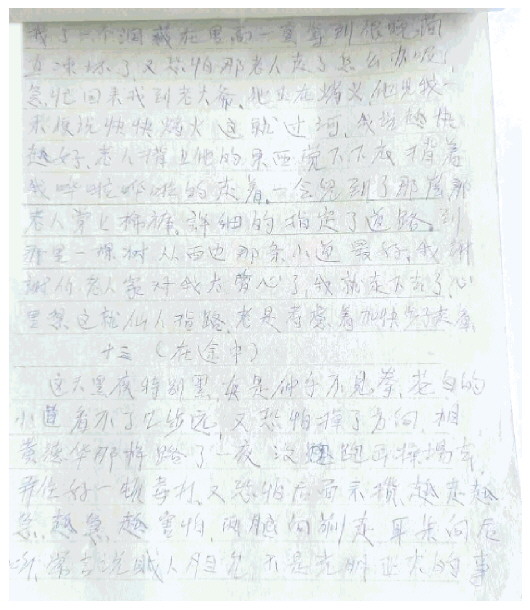 我了一个洞藏在里面一直等到很晚简
直冻坏了又恐怕那老人走了怎么办呢
急忙回来找到老大爷，他正在烤火，他见我一
来便说快快烤火 这就过河，我说越快
越好，老人背上他的东西说 背着
我哗啦哗啦的走着，一会儿到了那岸那
老人穿上棉裤，詳细的指定了道路，到
那里一棵树从西边那条小道最好，我谢
谢你老人家对我太费心了，我就走下去了，心
里想这就仙人指路，老是考察着加快步子走着
十三（在途中）
这天黑夜特别黑，真是伸手不见拳，苍白的
小道看不了几步远，又恐怕掉了方向，相
黄德华那样路了一夜没跑出操場去，
又恐怕后面示摸，越走越
急，越急，越害怕，两腿向前走，耳朵向后
听，常言说贼人胆虚 不是光明正大的事